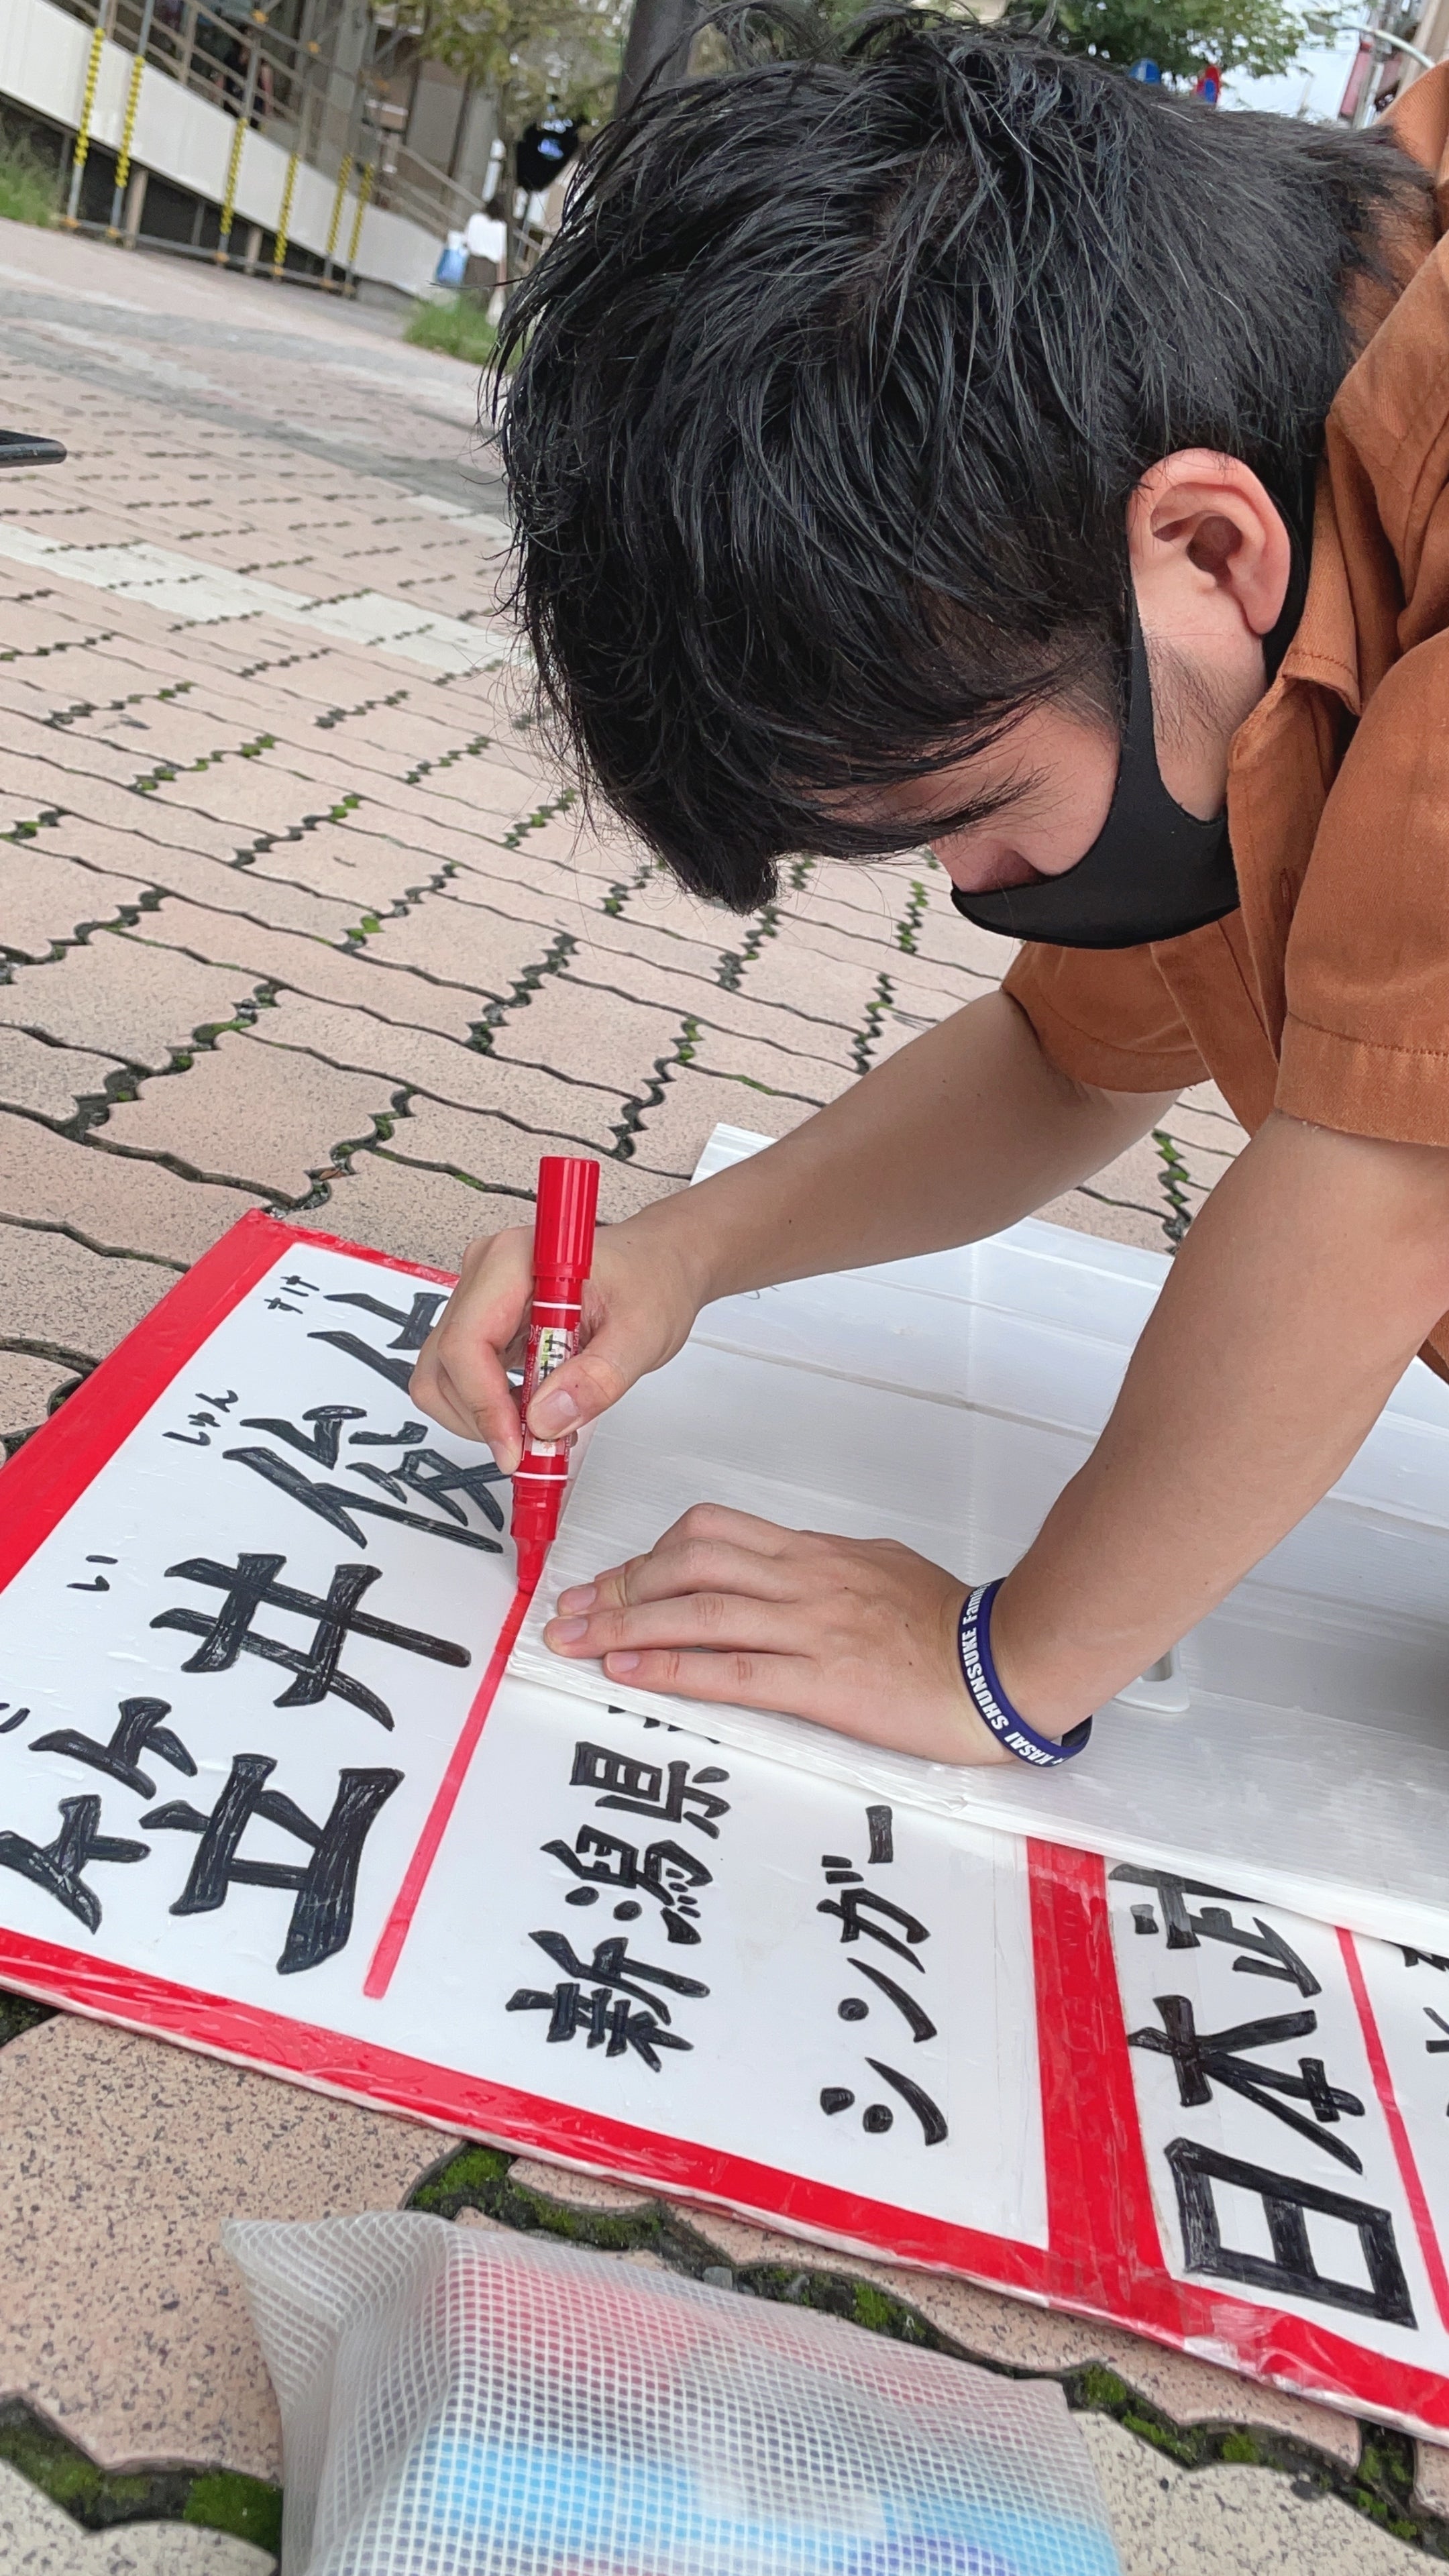 い しゅん すけ
笠井俊
新潟県
シンガー
日本
KASAI SHUNSUKE